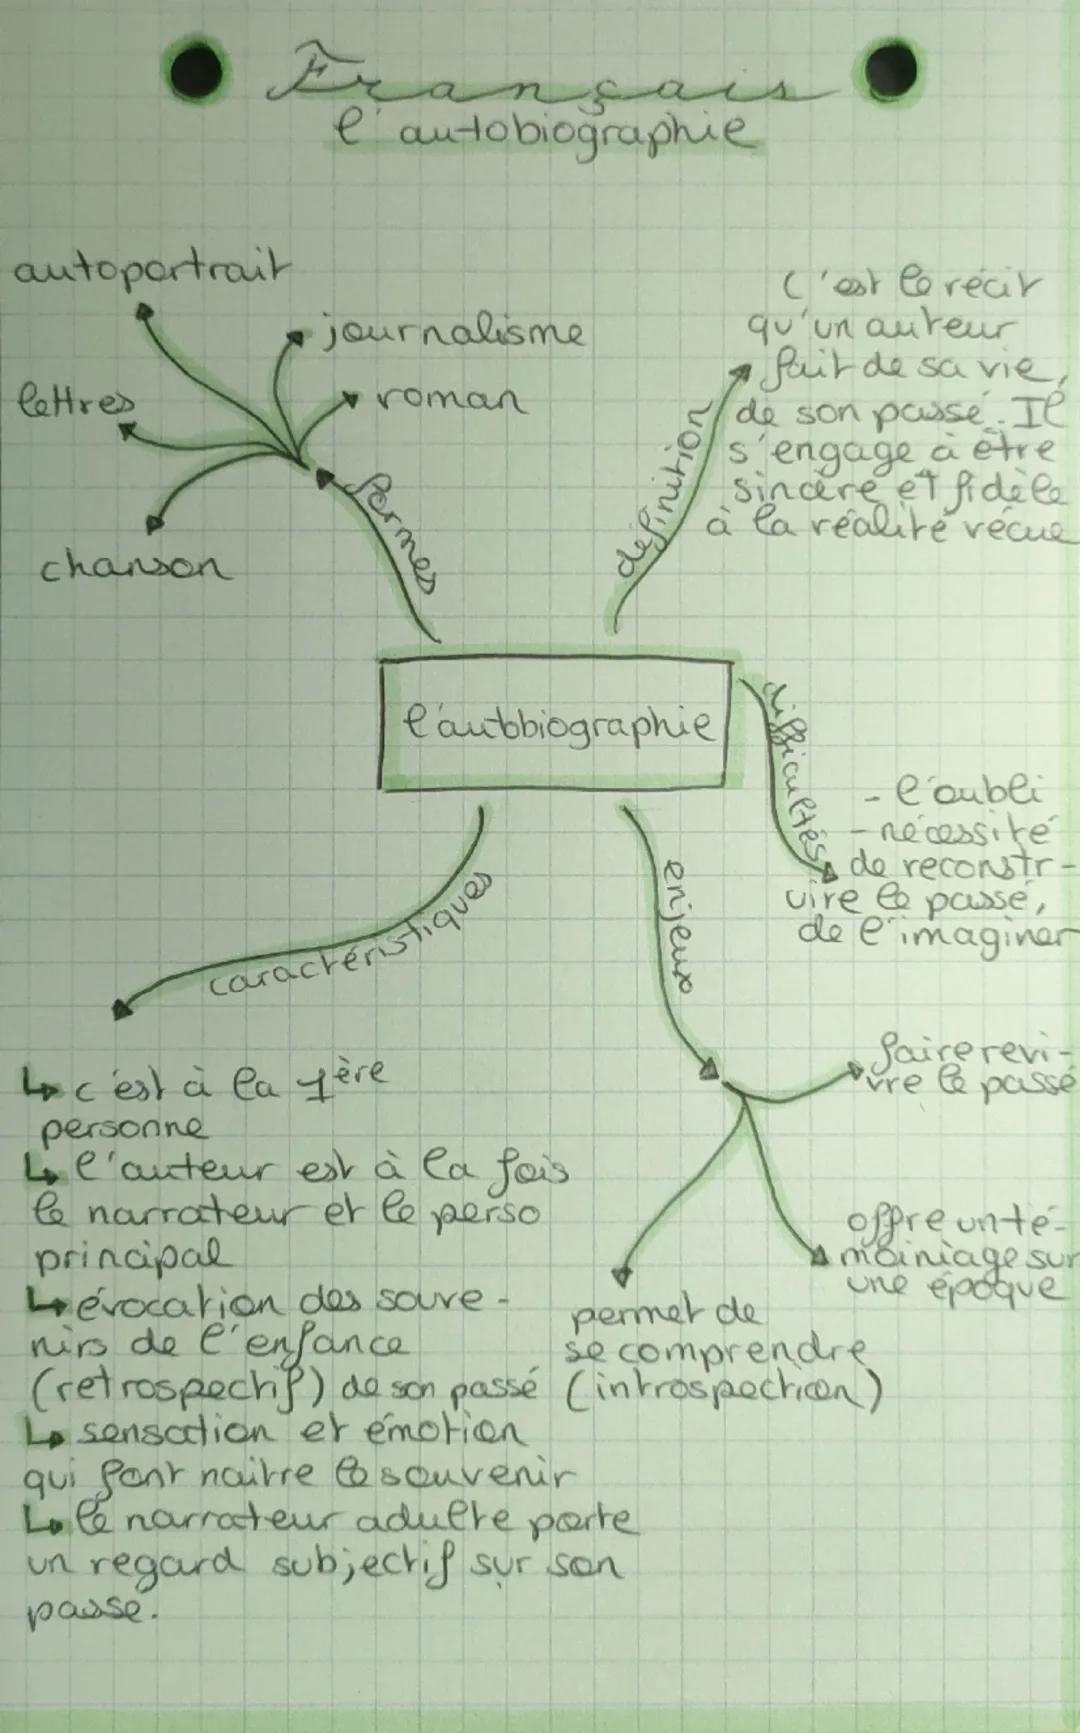 Français
l'autobiographie
autoportrait
journalisme
lettres
roman
chanson
formes
définition
C'est le récit
qu'un auteur
fait de sa vie,
de son passé. Il
s'engage à être
sincère et fidèle
à la réalité vécue
l'autobiographie
difficultés
- l'oubli
- nécessité
de reconstr-
uire le passé,
de l'imaginer
caractéristiques
↳ c'est à la 1ère
personne
↳ l'auteur est à la fois
le narrateur et le perso
principal
↳ évocation des souve-
nirs de l'enfance
(retrospectif) de son passé
↳ sensation et émotion
qui font naitre le souvenir
↳ le narrateur adulte porte
un regard subjectif sur son
passe.
enjeux
faire revi-
vre le passé
offre un té-
moiniage sur
une époque
permet de
se comprendre
(introspection)